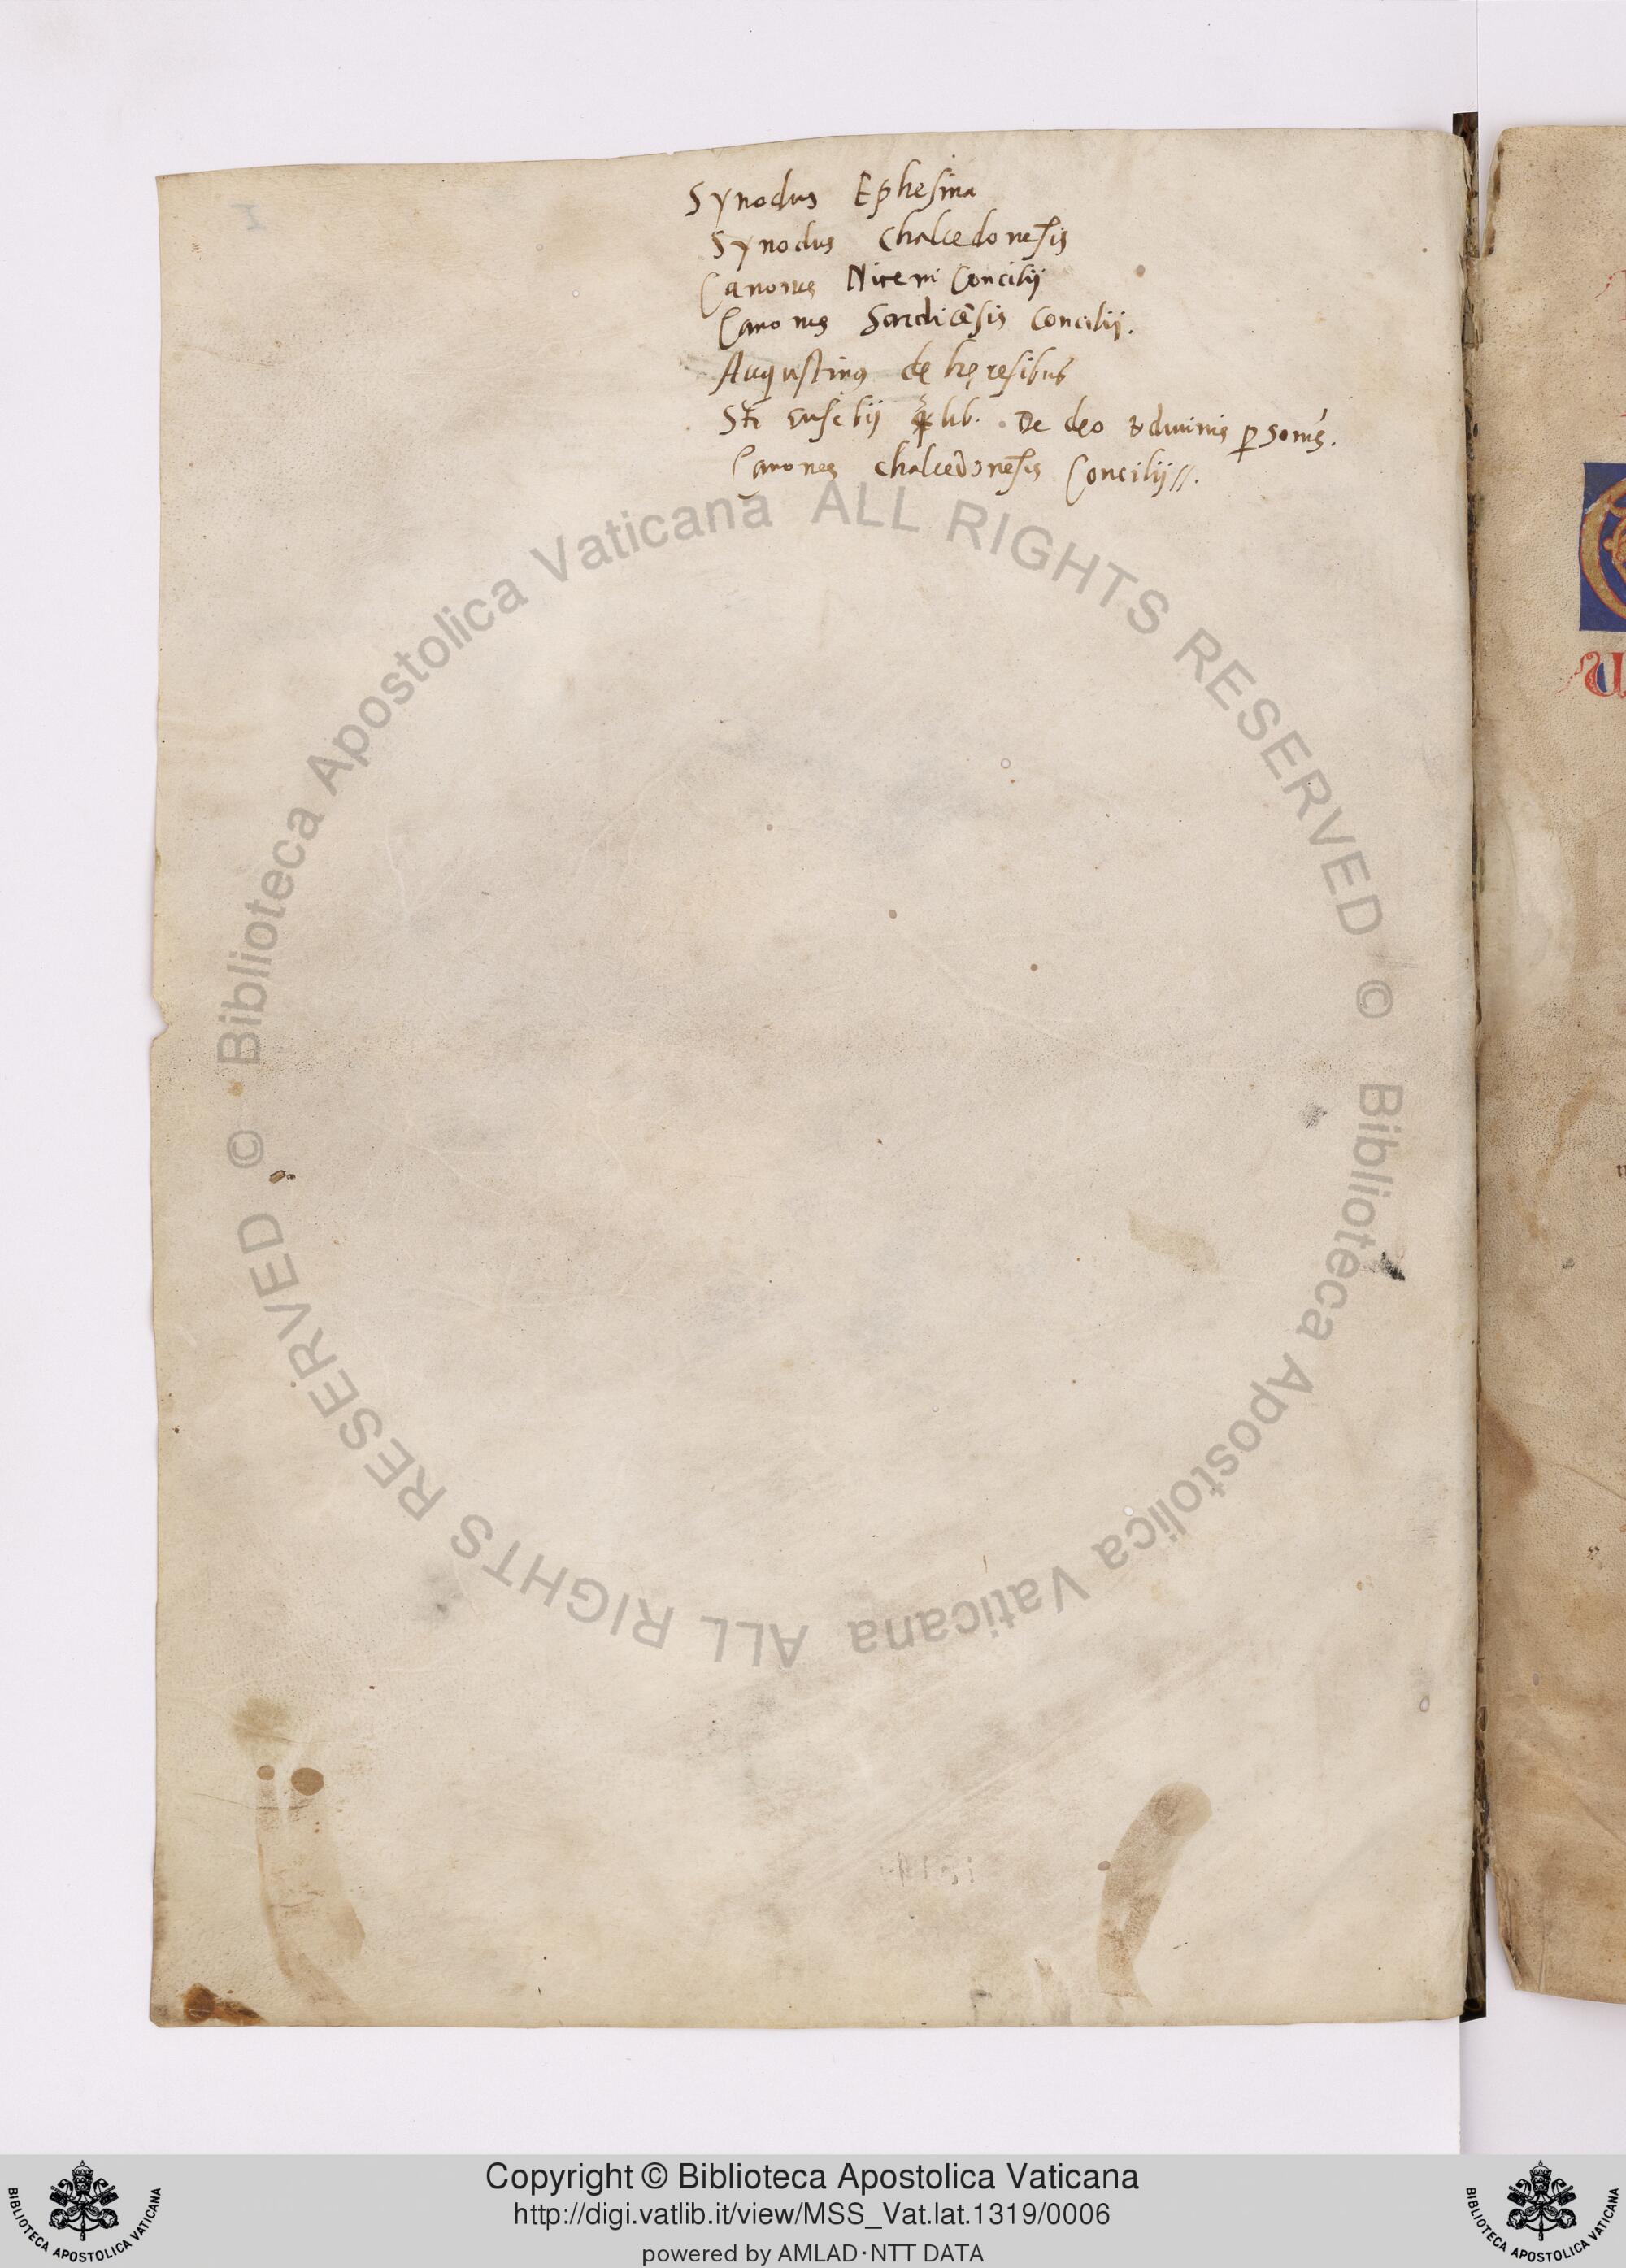 Synodus Ephesina
Synodus Chalcedonēsis
Canones Niceni Concilij
Canones Sardicēsis Concilij.
Augustinus dę hęresibus
Scti Eusebij lib. De dęo & diuinis personis.
Canones Chalcedonēsis Concilij //.
© Biblioteca Apostolica Vaticana ALL RIGHTS RESERVED
© Biblioteca Apostolica Vaticana ALL RIGHTS RESERVED
Copyright © Biblioteca Apostolica Vaticana
http://digi.vatlib.it/view/MSS_Vat.lat.1319/0006
powered by AMLAD·NTT DATA
BIBLIOTECA APOSTOLICA VATICANA
BIBLIOTECA APOSTOLICA VATICANA